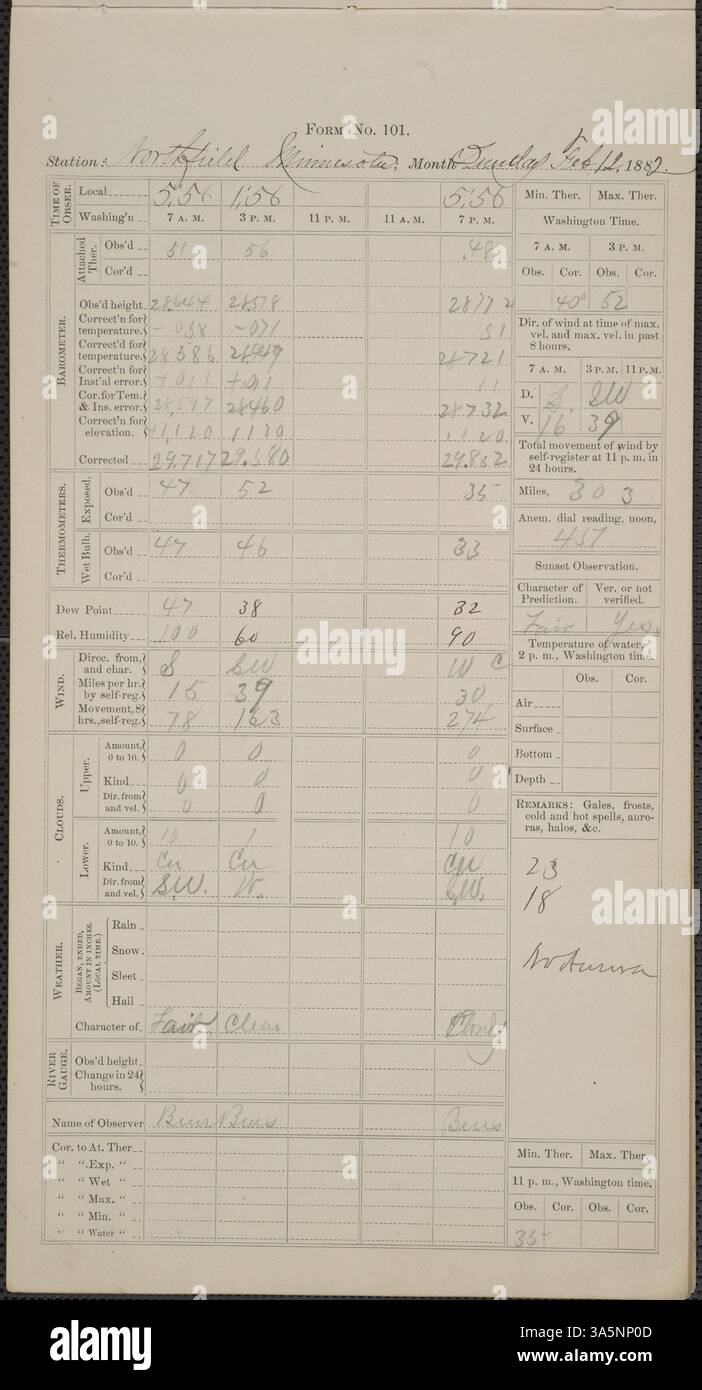 FORM No. 101.
Station: Northfield Minnesota, Month Sunday Feb 12, 1882.
TIME OF OBSER. Local 5;56 1;56 5;56 Min. Ther. Max. Ther.
Washing'n 7 A. M. 3 P. M. 11 P. M. 11 A. M. 7 P. M. Washington Time.
7 A. M. 3 P. M.
Attached Ther. Obs'd 51 56 48
Cor'd Obs. Cor. Obs. Cor.
BAROMETER. Obs'd height 28644 28578 2877 40 52
Correct'n for temperature. -058 -071 51 Dir. of wind at time of max. vel. and max. vel. in past 8 hours.
Correct'd for temperature. 28586 28 28721
Correct'n for Inst'al error. +011 +011 11 7 A. M. 3 P.M. 11 P.M.
Cor. for Tem. & Ins. error. 28,597 28460 28732 D. S. SW
Correct'n for elevation. +1,120 1120 1120 V. 16 39
Corrected 29.717 29.580 29.852 Total movement of wind by self-register at 11 p. m. in 24 hours.
THERMOMETERS. Exposed. Obs'd 47 52 35 Miles, 303
Cor'd Anem. dial reading, noon,
Wet Bulb. Obs'd 47 46 33 457
Cor'd Sunset Observation.
Character of Prediction. Ver. or not verified.
Dew Point 47 38 32 Fair Yes.
Rel. Humidity 100 60 90 Temperature of water, 2 p. m., Washington time.
WIND. Direc. from, and char. S SW W C
Miles per hr. by self-reg. 15 39 30 Obs. Cor.
Movement, 8 hrs., self-reg. 78 163 274 Air
CLOUDS. Upper. Amount, 0 to 10. 0 0 0 Surface
Kind 0 0 0 Bottom
Dir. from and vel. 0 0 0 Depth
Lower. Amount, 0 to 10. 10 1 10 REMARKS: Gales, frosts, cold and hot spells, auroras, halos, &c.
Kind Cu Cu Cu 23
Dir. from and vel. SW. W. SW. 18
WEATHER. BEGAN, ENDED, AMOUNT IN INCHES. (LOCAL TIME.) Rain
Snow No Aurora
Sleet
Hail
Character of Fair Clear Cloudy
RIVER GAUGE. Obs'd height
Change in 24 hours.
Name of Observer
Cor. to At. Ther Min. Ther. Max. Ther.
" " .Exp. "
" " Wet " 11 p. m., Washington time.
" " Max. " Obs. Cor. Obs. Cor.
" " Min. "
" " Water " 35
alamy
Image ID: 3A5NP0D
www.alamy.com